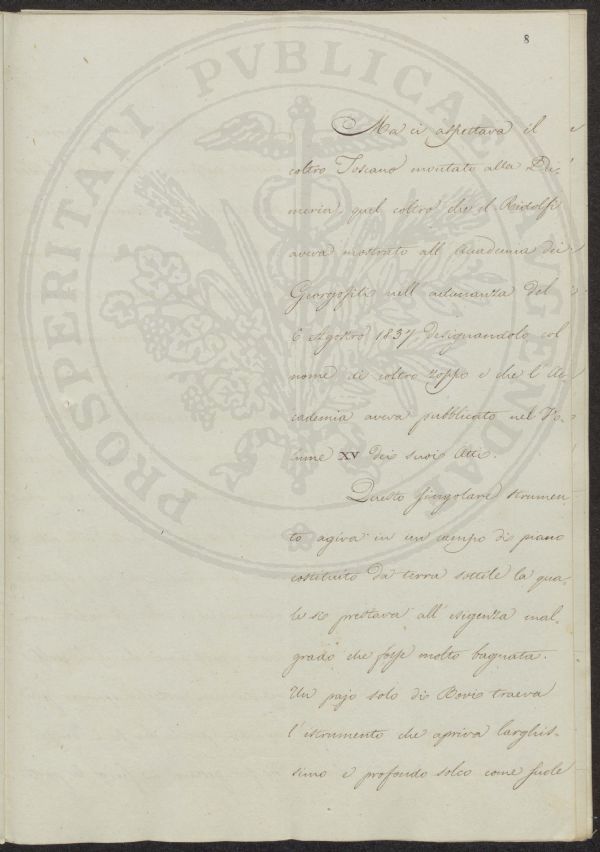 8
PROSPERITATI PVBLICAE AVGENDAE
Ma ci aspettava il
coltro Toscano montato alla Du-
meria, quel coltro che il Ridolfi
aveva mostrato all'Accademia di
Georgofili nell'adunanza del
6 Agosto 1837 designandolo col
nome di coltro zoppo e che l'Ac-
cademia aveva pubblicato nel Vo-
lume XV dei suoi Atti.
Questo singolare strumen-
to agiva in un campo di piano
costituito da terra sottile la qua-
le si prestava all'esigenza mal-
grado che fosse molto bagnata.
Un pajo solo di Bovi traeva
l'istrumento che apriva larghis-
simo e profondo solco come suole